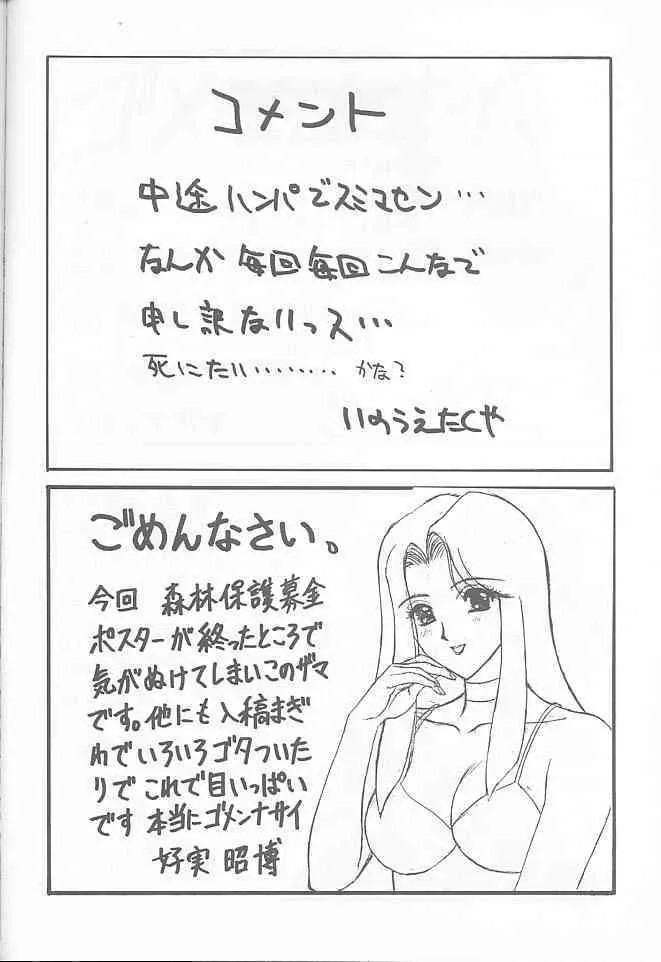 コメント
中途ハンパでスミマセン…
なんか毎回毎回こんなで
申し訳ないっス…
死にたい……… かな？
いのうえたくや
ごめんなさい。
今回 森林保護募金
ポスターが終ったところで
気がぬけてしまいこのザマ
です。他にも入稿まぎ
わでいろいろゴタついた
りで これで目いっぱい
です 本当にゴメンナサイ
好実 昭博